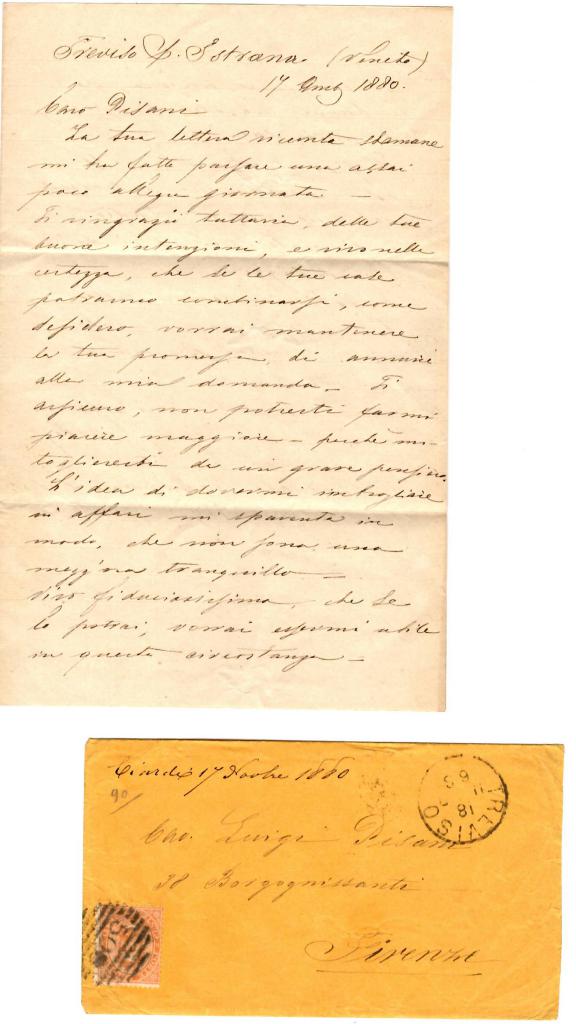 Treviso p. Istrana. (Veneto)
17 9mb. 1880.
Caro Pisani
La tua lettera ricevuta stamane
mi ha fatto passare una assai
poco allegra giornata —
Ti ringrazio tuttavia, delle tue
buone intenzioni, e vivo nella
certezza, che se le tue cose
potranno combinarsi, come
desidero, vorrai mantenere
la tua promessa di
alla mia domanda. — Ti
assicuro, non potresti farmi
piacere maggiore — perchè mi
toglieresti da un grave pensiero.
L'idea di dovermi imbrogliare
in affari mi spaventa in
modo, che non sono una
mezz'ora tranquillo —
Vivo fiduciosissimo, che se
lo potrai, vorrai essermi utile
in questa circostanza —
Ciardi 17 Novbre 1880
90/
TREVISO
18
11
Cav. Luigi Pisani
38 Borgognissanti
Firenze